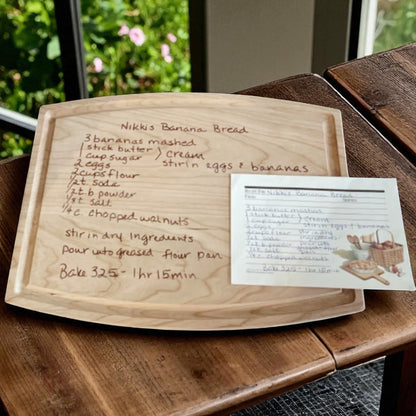 Nikki's Banana Bread
3 bananas mashed
1 stick butter } cream
1 cup sugar
2 eggs stir in eggs & bananas
2 cups flour
1/2 t. soda
2 t. b powder
salt
1/4 c chopped walnuts
stir in dry ingredients
Pour into greased flour Pan
Bake 325 - 1hr 15min
Nikki's Banana Bread
3 bananas mashed
1 stick butter cream
1 cup sugar
2 eggs stir in eggs & bananas
2 cups flour stir in dry
Bake 325 - 1hr 15